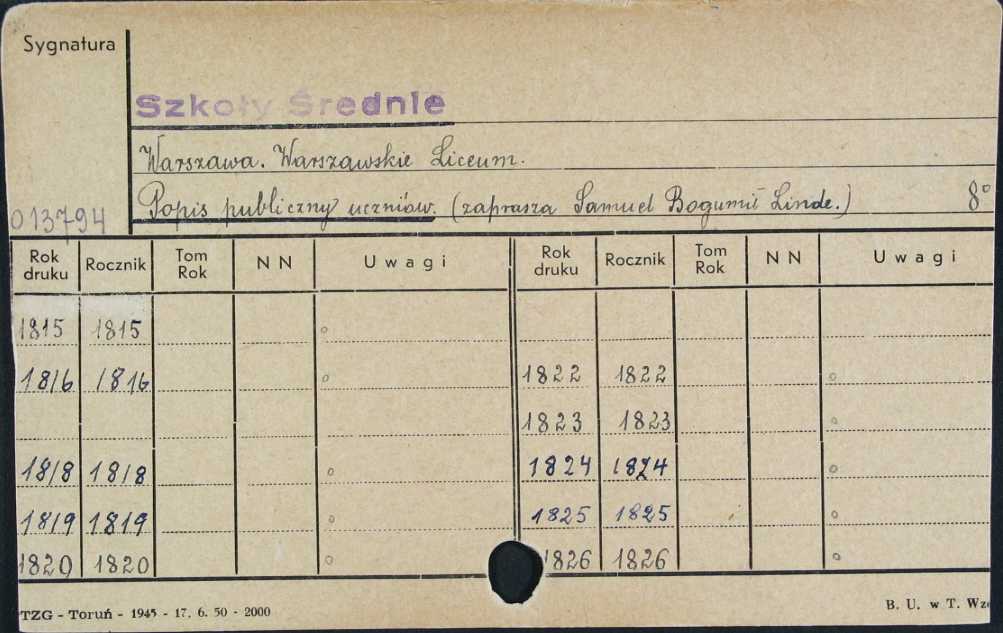 Sygnatura
Szkoły Średnie
Warszawa. Warszawskie Liceum.
013794 Popis publiczny uczniów. (zaprasza Samuel Bogumił Linde.) 8°
Rok druku Rocznik Tom Rok NN Uwagi Rok druku Rocznik Tom Rok NN Uwagi
1815 1815 °
1816 1816 ° 1822 1822 °
1823 1823 °
1818 1818 ° 1824 1824 °
1819 1819 ° 1825 1825 °
1820 1820 ° 1826 1826 °
TZG - Toruń - 1945 - 17. 6. 50 - 2000 B. U. w T. Wz